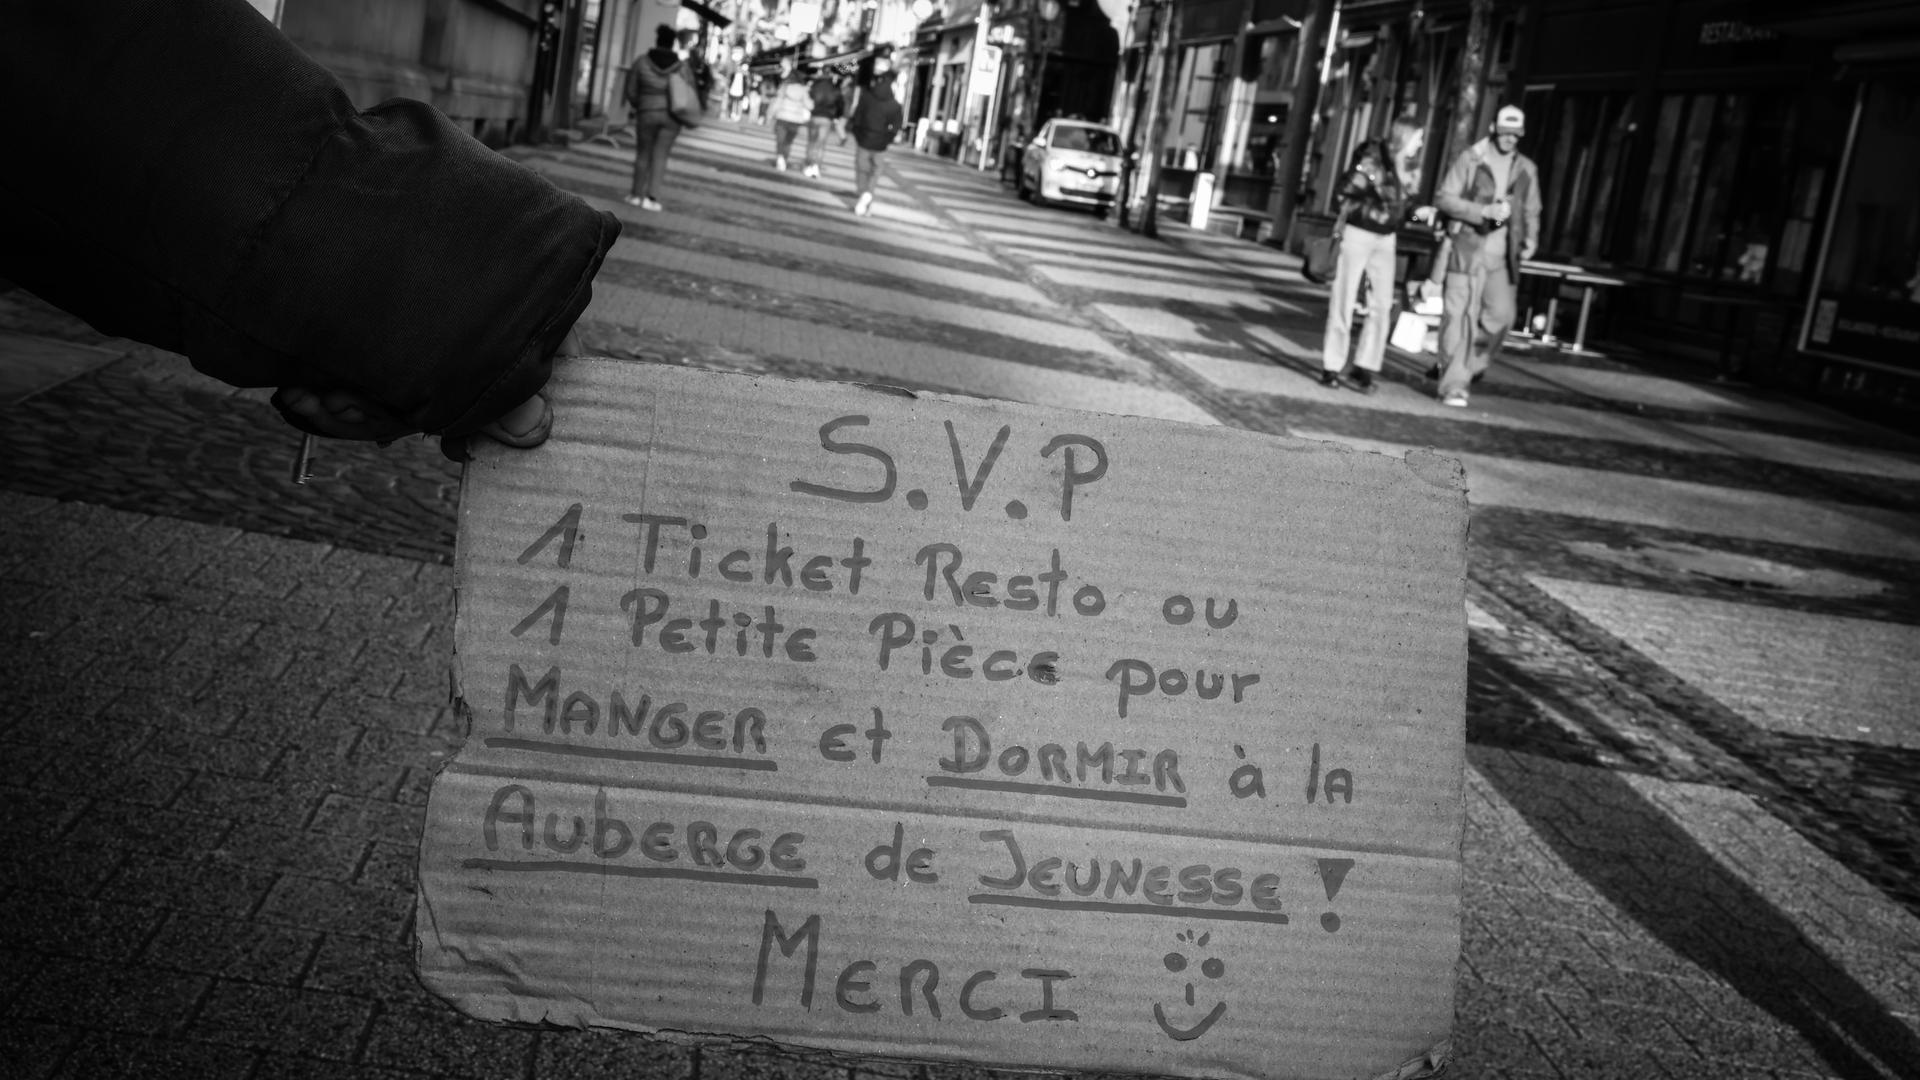 RESTAURANT
S.V.P
1 Ticket Resto ou
1 Petite Pièce pour
MANGER et DORMIR à la
AubERGE de JEUNESSE !
MERCI